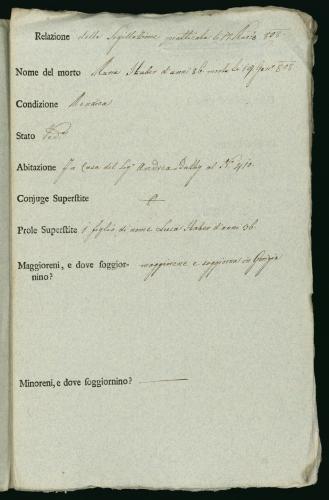 Relazione della Sigillazione praticata li 19. Marzo 808.
Nome del morto Maria Haber d'anni 86 morta li 19 Gen.º 808.
Condizione Mendica
Stato Ved.ª
Abitazione In Casa del Sig.r Andrea Balby al N.º 410.
Conjuge Superstite
Prole Superstite 1 figlio di nome Luca Haber d'anni 36.
Maggioreni, e dove soggior- maggiorene e soggiorna in Gorizia
nino?
Minoreni, e dove soggiornino?